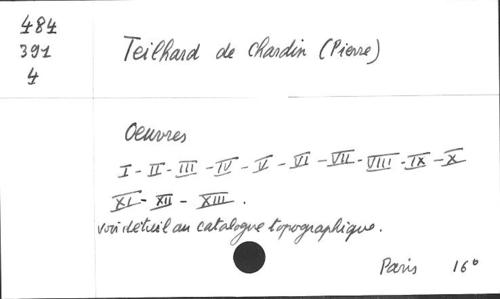 484
391
4
Teilhard de Chardin (Pierre)
Oeuvres
I - II - III - IV - V - VI - VII - VIII - IX - X
XI - XII - XIII .
voir détail au catalogue topographique.
Paris 16°